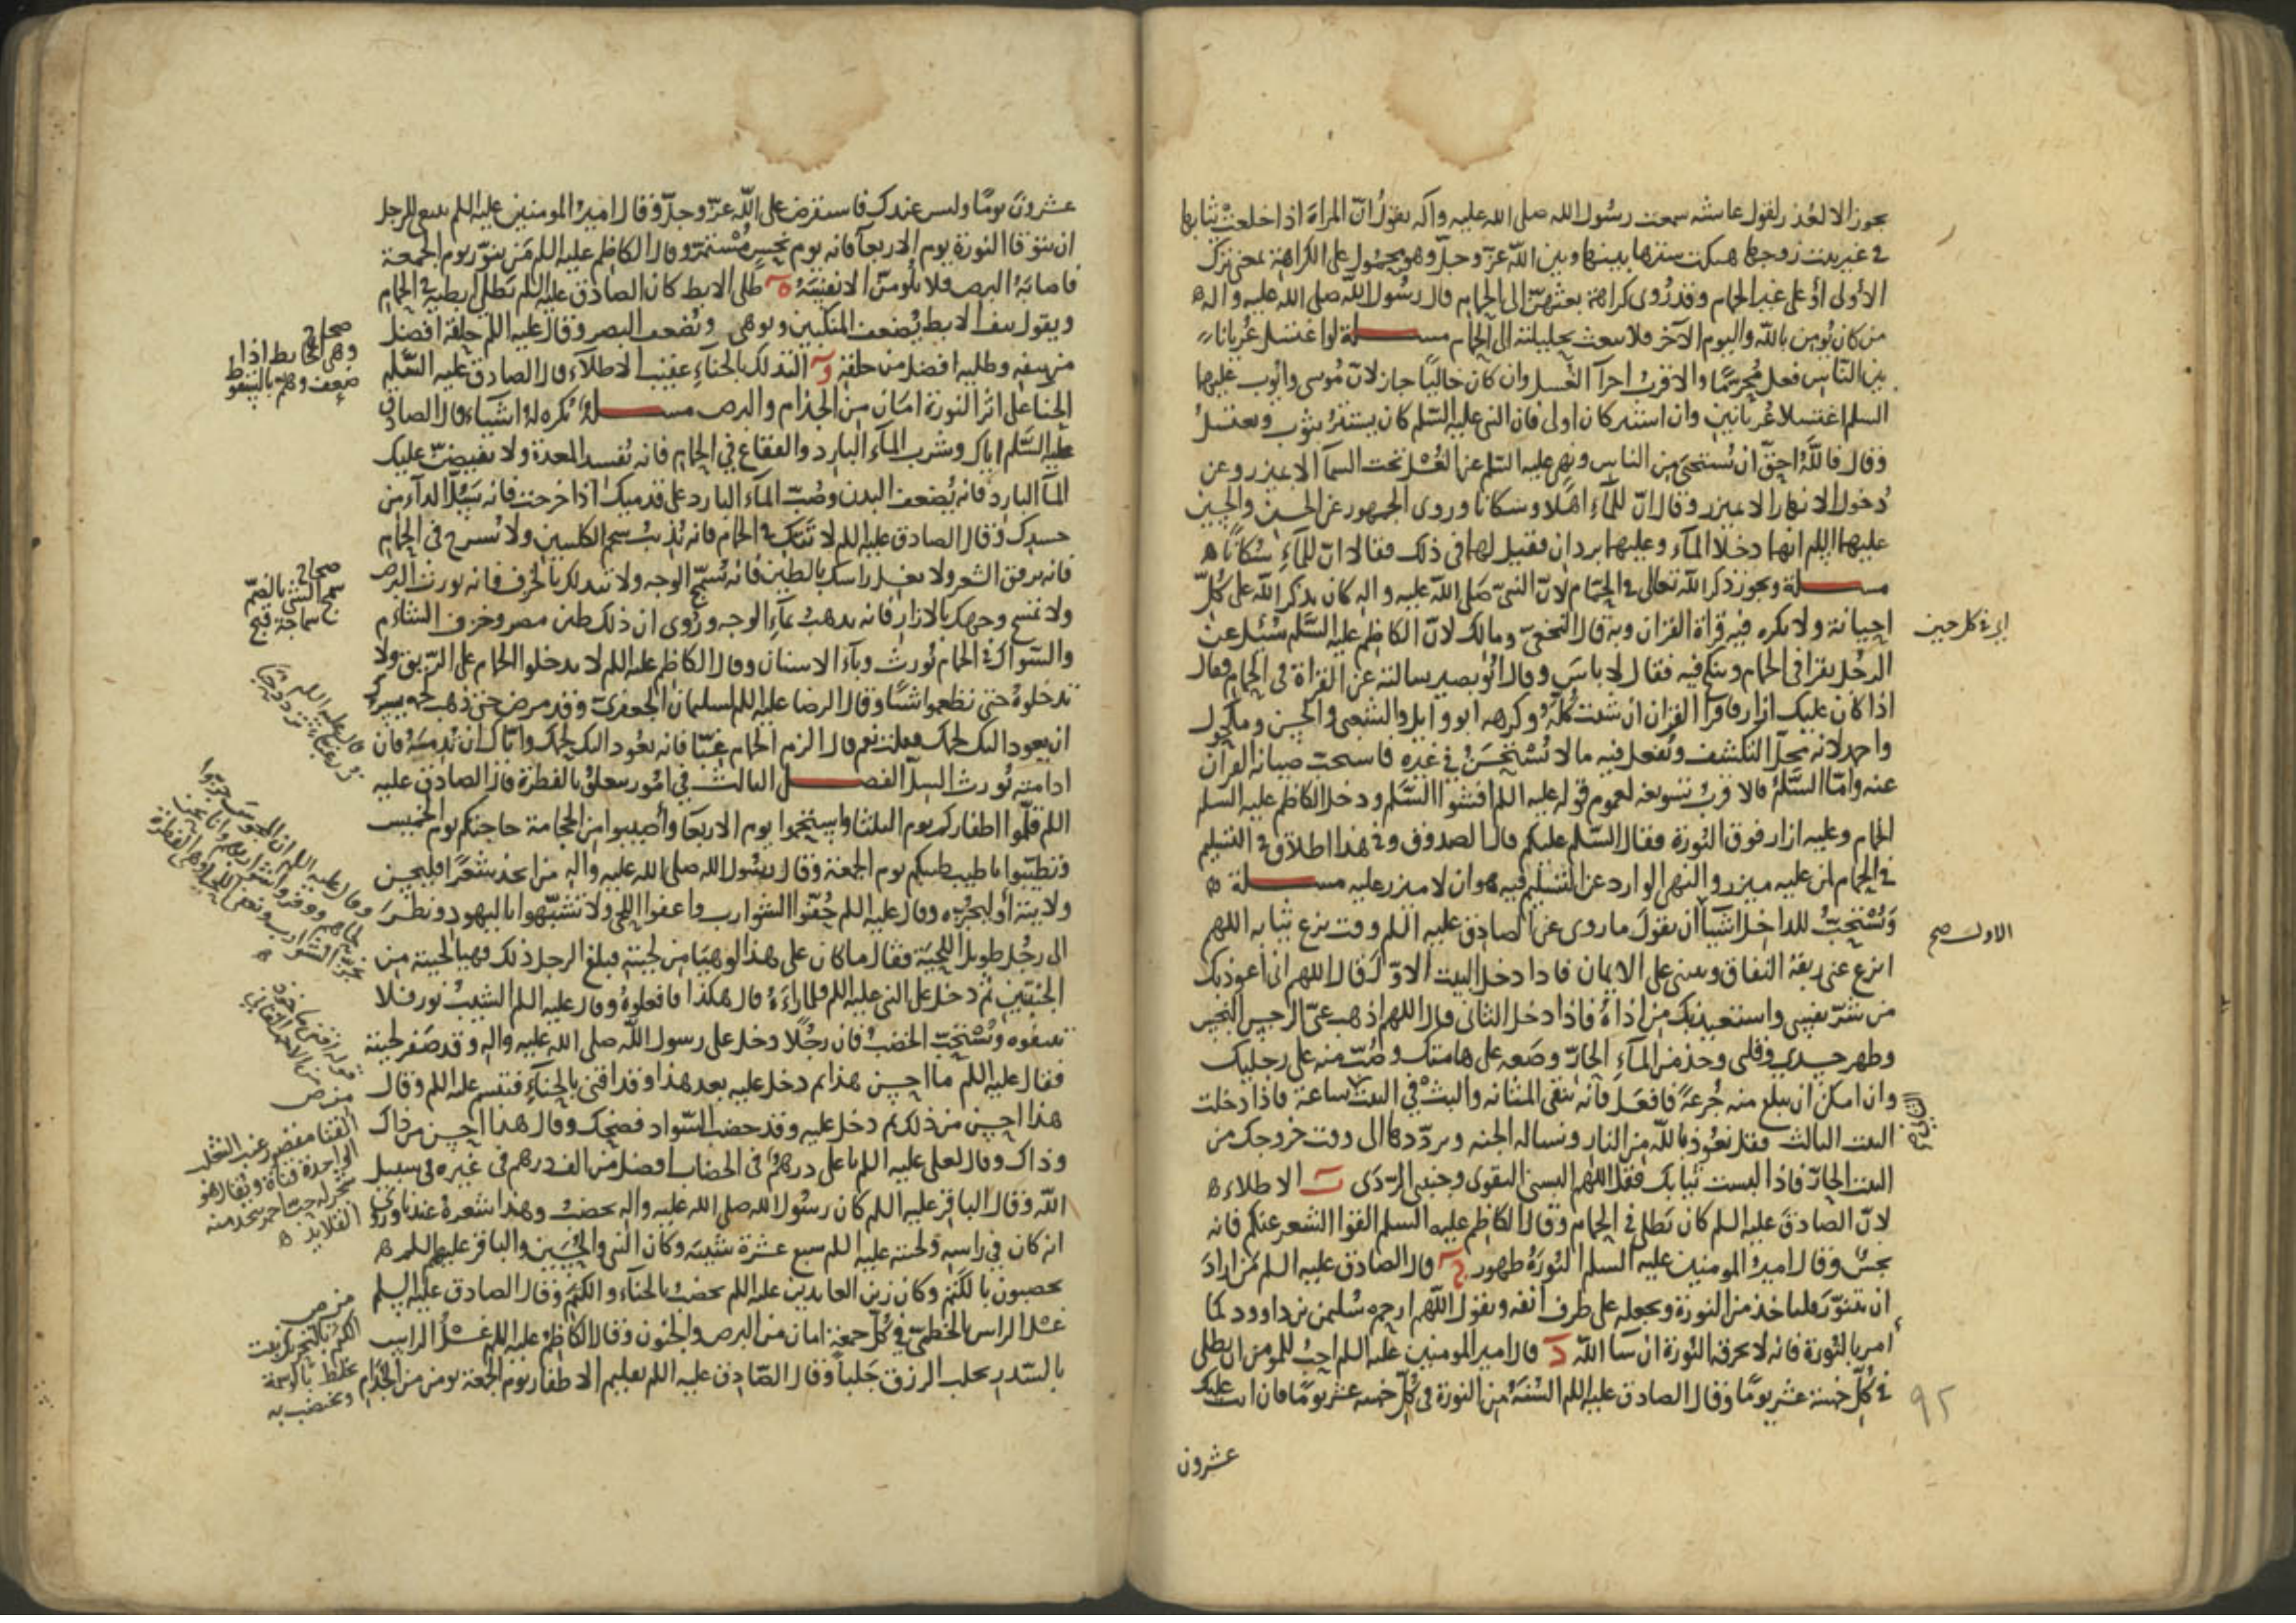 يجوز الا لعذر لقول عائشه سمعت رسول الله صلى الله عليه وآله يقول ان المراة اذا خلعت ثيابها
في غير بيت زوجها هتكت سترها بينها وبين الله عز وجل وهو محمول على الكراهة بمعنى ترك
الأولى او على غير الحمام وقد روى كراهة بعثهن الى الحمام قال رسول الله صلى الله عليه واله
من كان يومن بالله واليوم الآخر فلا يبعث بحليلته الى الحمام مسلة لو اغتسل عريانا
بين الناس فعل محرما والاقرب اجزآ الغسل وان كان خاليا جاز لان موسى وايوب عليهما
السلم اغتسلا عريانين وان استتر كان اولى فان النبي عليه السلم كان يستتر بثوب ويغتسل
وقال فالله احق ان يستحيى من الناس ونهى عليه السلم عن الغسل تحت السمآ الا بميزر وعن
دخول الانهار الا بميزر وقال ان للمآء اهلا وسكانا وروى الجمهور عن الحسن والحسين
عليهما اللم انهما دخلا المآء وعليهما بردان فقيل لهما في ذلك فقالا ان للمآء سكانا
مسلة ويجوز ذكر الله تعالى في الحمام لان النبي صلى الله عليه واله كان يذكر الله على كل
احيانه ولا يكره فيه قراة القران وبه قال النخعي ومالك لان الكاظم عليه السلم سئل عن
اي في كل حين
الرجل يقرا في الحمام وينكح فيه فقال لا باس وقال ابو بصير سالته عن القراة في الحمام فقال
اذا كان عليك ازار فاقرا القران ان شئت كله وكرهه ابو وايل والشعبي والحسن ومكحول
واحمد لانه محل التكشف ويفعل فيه ما لا يستحسن في غيره فاستحب صيانة القرآن
عنه واما السلم فالاقرب تسويغه لعموم قوله عليه اللم افشوا السلم ودخل الكاظم عليه السلم
الحمام وعليه ازار فوق النورة فقال السلم عليكم قال الصدوق وفي هذا اطلاق في التسليم
في الحمام لمن عليه ميزر والنهى الوارد عن التسليم فيه هو لمن لا ميزر عليه مسلة
ويستحب للداخل اشيآ ان يقول ما روى عن الصادق عليه السلم وقت نزع ثيابه اللهم
الاول صح
انزع عني ربقة النفاق وثبتني على الايمان فاذا دخل البيت الاول قال اللهم اني اعوذ بك
من شر نفسي واستعيذ بك من اذاه فاذا دخل الثاني قال اللهم اذهب عني الرجس النجس
وطهر جسدي وقلبي وخذ من المآء الحار وضعه على هامتك وصب منه على رجليك
وان امكن ان تبلع منه جرعة فافعل فانه ينقي المثانة والبث في البيت ساعة فاذا دخلت
الثاني صح
البيت الثالث فقل نعوذ بالله من النار ونساله الجنه وترددها الى وقت خروجك من
البيت الحار فاذا لبست ثيابك فقل اللهم البسني التقوى وجنبني الردى ب الاطلاء
لان الصادق عليه السلم كان يطلى في الحمام وقال الكاظم عليه السلم القوا الشعر عنكم فانه
يحسن وقال امير المومنين عليه السلم النورة طهور ج قال الصادق عليه السلم من اراد
ان يتنور فلياخذ من النورة ويجعله على طرف انفه ويقول اللهم ارحم سليمن بن داوود كما
امر بالنورة فانه لا تحرقه النورة ان شا الله د قال امير المومنين عليه السلم احب للمومن ان يطلى
في كل خمسة عشر يوما وقال الصادق عليه اللم السنة من النورة في كل خمسة عشر يوما فان اتت عليك
٩٢
عشرون
عشرون يوما وليس عندك فاستقرض على الله عز وجل وقال امير المومنين عليه اللم ينبغي للرجل
ان يتوقا النورة يوم الاربعآ فانه يوم نحس مستمر وقال الكاظم عليه اللم من يتنور يوم الجمعة
فاصابه البرص فلا يلومن الا نفسه ه طلى الابط كان الصادق عليه اللم يطلى ابطيه في الحمام
ويقول نتف الابط يضعف المنكبين ويوهى ويضعف البصر وقال عليه اللم حلقه افضل
من نتفه وطليه افضل من حلقه و التدلك بالحناء عقيب الاطلآء قال الصادق عليه السلم
الحنا على اثر النورة امان من الجذام والبرص مسلة يكره له اشياء قال الصادق
عليه السلم اياك وشرب المآء البارد والفقاع في الحمام فانه يفسد المعدة ولا تفيضن عليك
المآ البارد فانه يضعف البدن وصب المآء البارد على قدميك اذا خرجت فانه يسل الدآء من
جسدك وقال الصادق عليه اللم لا تتك في الحمام فانه يذيب شحم الكليتين ولا تسرح في الحمام
فانه يرقق الشعر ولا تغسل راسك بالطين فانه يسمج الوجه ولا تتدلك بالخزف فانه يورث البرص
ولا تمسح وجهك بالازار فانه يذهب بمآء الوجه وروى ان ذلك طين مصر وخزف الشام
والسواك في الحمام يورث وبآء الاسنان وقال الكاظم عليه اللم لا تدخلوا الحمام على الريق ولا
تدخلوه حتى تطعموا شيئا وقال الرضا عليه اللم لسليمان الجعفري وقد مرض حتى ذهب لحمه يسرك
ان يعود اليك لحمك فقلت نعم قال الزم الحمام غبا فانه يعود اليك لحمك واياك ان تدمنه فان
ادمانه يورث السل الفصل الثالث في امور تتعلق بالفطرة قال الصادق عليه
اللم قلموا اظفاركم يوم الثلثا واستحموا يوم الاربعا وأصيبوا من الحجامة حاجتكم يوم الخميس
وتطيبوا باطيب طيبكم يوم الجمعة وقال رسول الله صلى الله عليه واله من اتخذ شعرا فليحسن
ولايته أو ليجزه وقال عليه اللم حفوا الشوارب واعفوا اللحى ولا تشبهوا باليهود ونظر
الى رجل طويل اللحية فقال ما كان على هذا لو هيا من لحيته فبلغ الرجل ذلك فهيا لحيته بين
اللحيتين ثم دخل على النبي عليه اللم فلما رآءه قال هكذا فافعلوه وقال عليه اللم الشيب نور فلا
تنتفوه ويستحب الخضب فان رجلا دخل على رسول الله صلى الله عليه واله وقد صفر لحيته
فقال عليه اللم ما احسن هذا ثم دخل عليه بعد هذا وقد اقنى بالحناء فتبسم عليه اللم وقال
هذا احسن من ذلك ثم دخل عليه وقد خضب السواد فضحك وقال هذا احسن من ذاك
وذاك وقال لعلي عليه اللم يا علي درهم في الخضاب افضل من الف درهم في غيره في سبيل
الله وقال الباقر عليه اللم كان رسول الله صلى الله عليه واله يخضب وهذا شعره عندنا وروى
انه كان في راسه ولحيته عليه اللم سبع عشرة شيبه وكان النبي والحسين والباقر عليهم اللم
يخضبون بالكتم وكان زين العابدين عليه اللم يخضب بالحنآء والكتم وقال الصادق عليه السلم
غسل الراس بالخطمى في كل جمعة امان من البرص والجنون وقال الكاظم عليه اللم غسل الراس
بالسدر يجلب الرزق جلبا وقال الصادق عليه اللم تقليم الاظفار يوم الجمعة يومن من الجذام
صحاح
صحاح
سمج الشي بالضم
سماجة قبح
القنا مقصور عنب الثعلب
الواحدة قناة ويقال هو
شجر له حب احمر يتخذ منه
القلايد
من ص
الكتم بالتحريك نبت
يخلط بالوسمة
ويختضب به